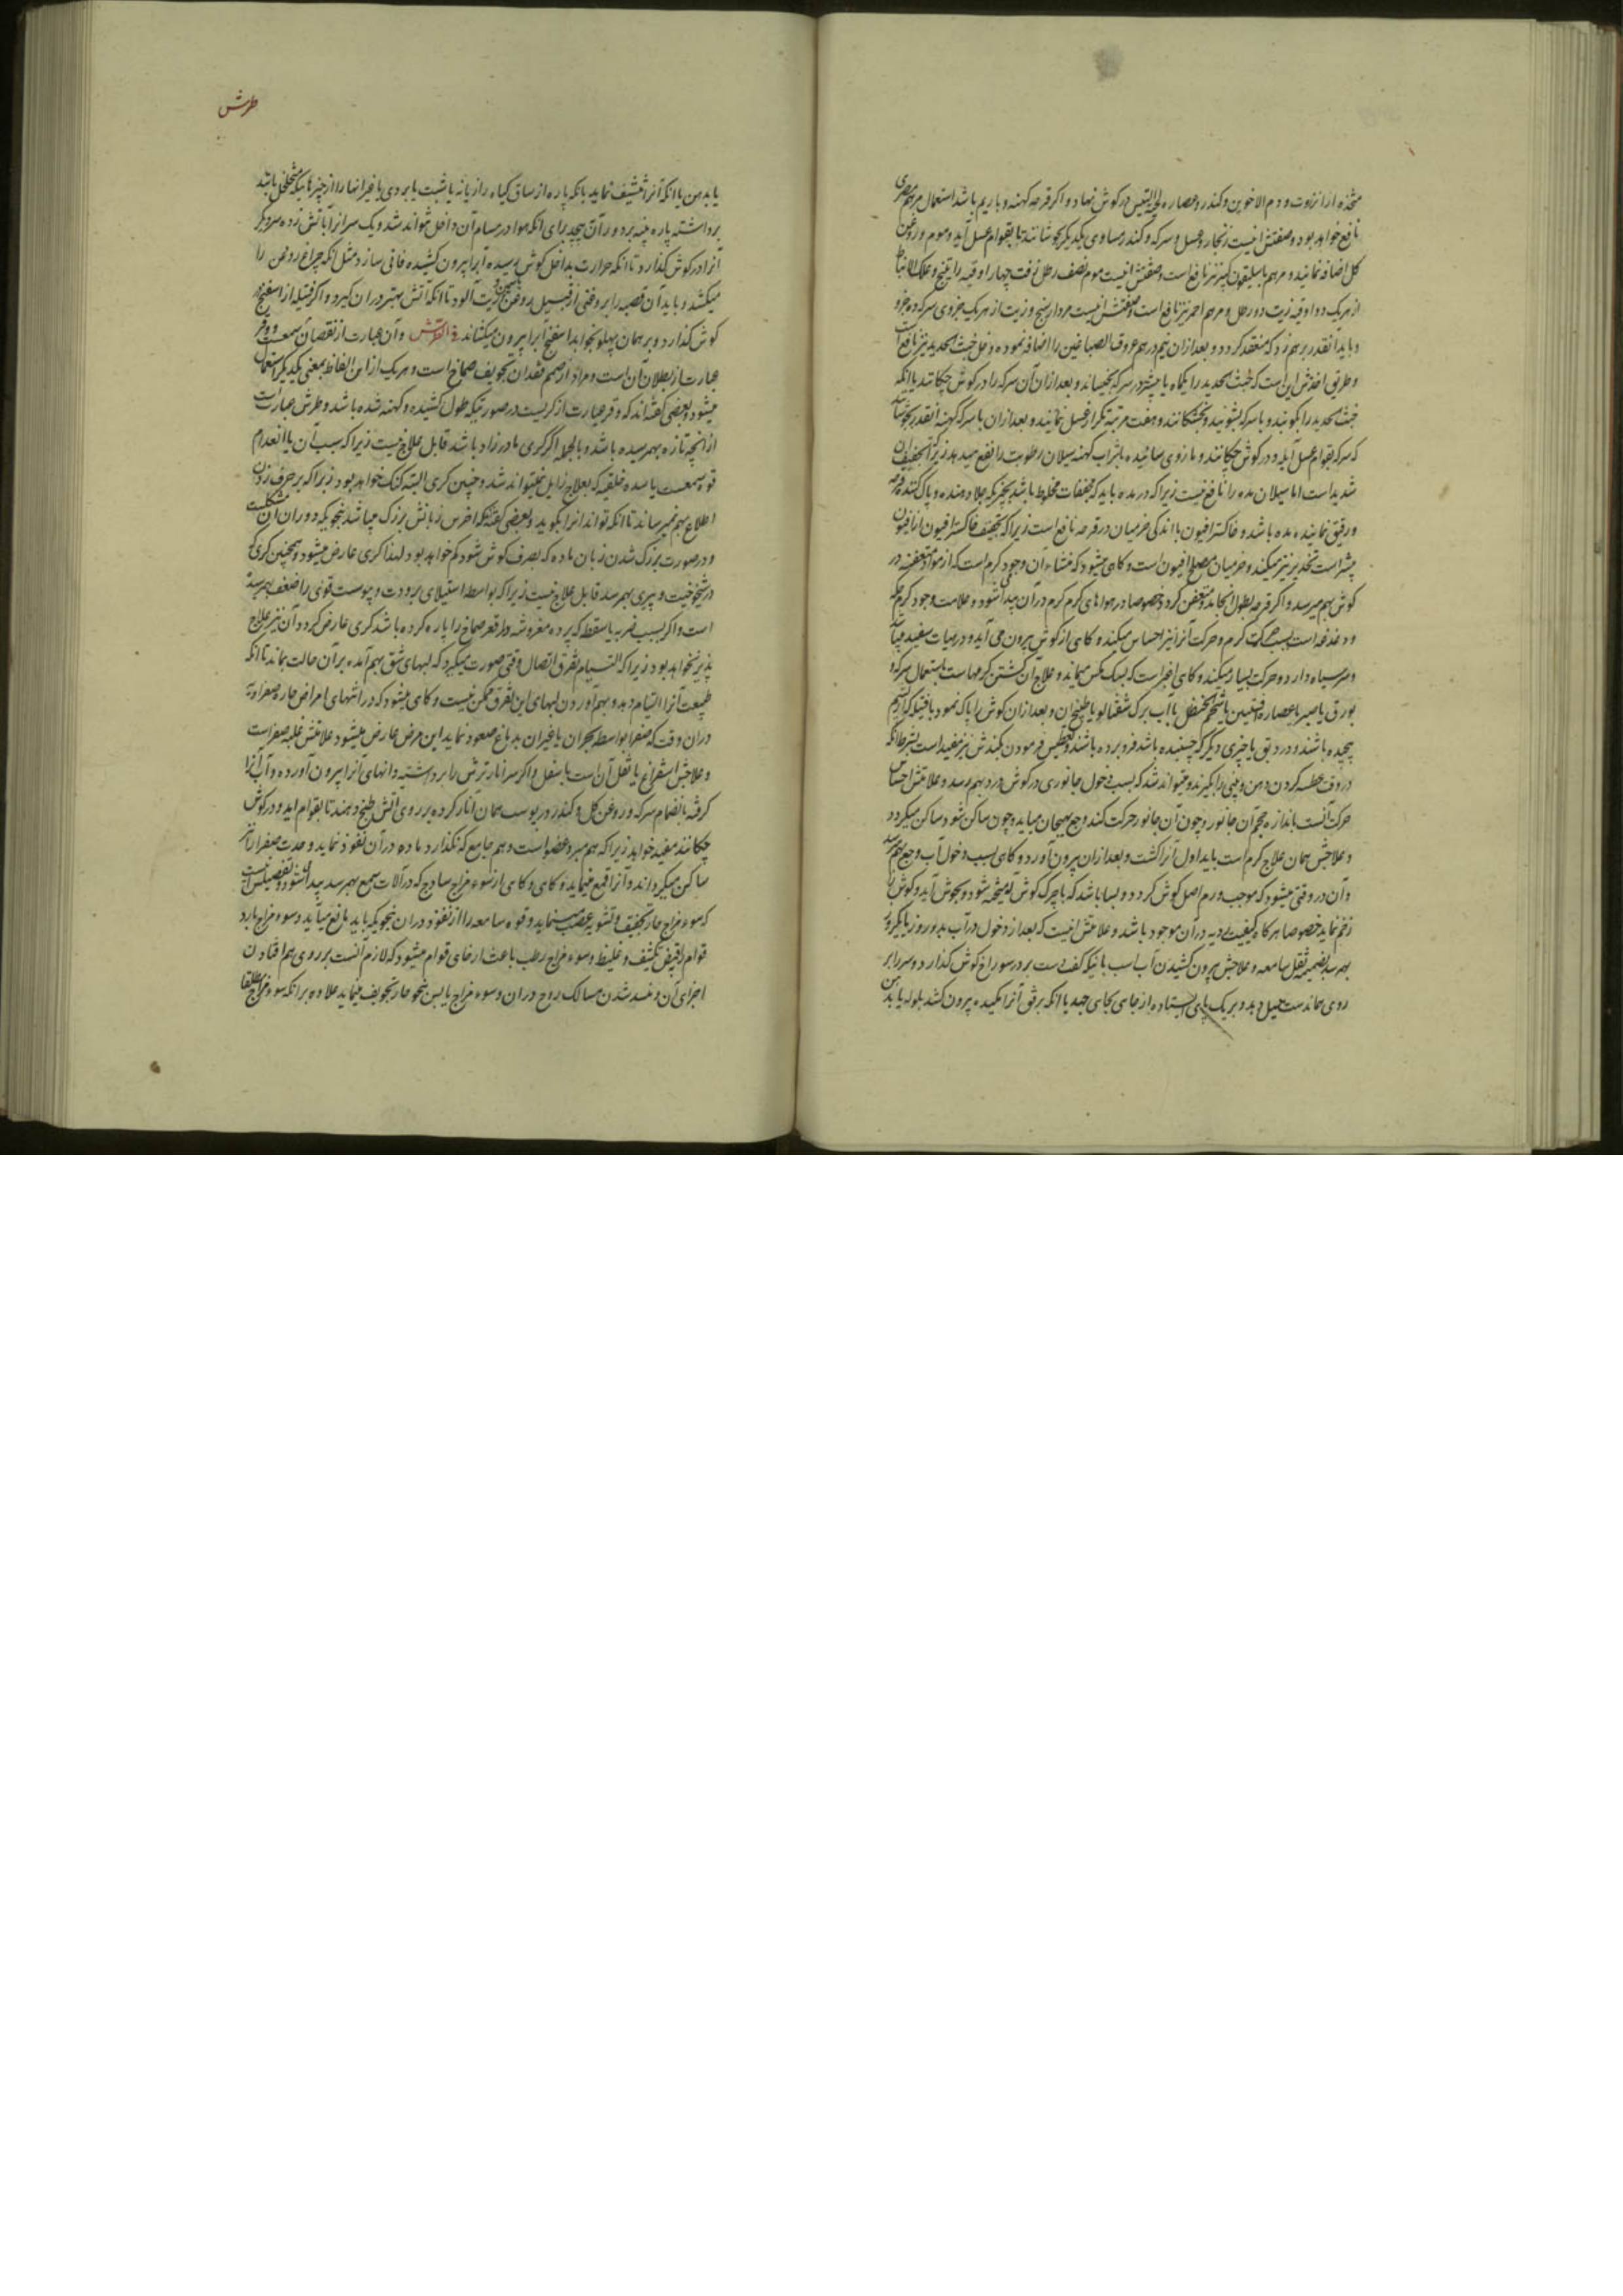 متخذه از انزروت و دم الاخوین و کندر و عصاره لحیة التیس در کوش نهاد و اکر قرحه کهنه و با ریم باشد استعمال مرهم مصری
نافع خواهد بود و صفتش اینست زنجار و عسل و سرکه و کندر مساوی یکدیکر بجوشانند تا بقوام عسل آید و موم و روغن
کل اضافه نمایند و مرهم باسلیقون کبیر نیز نافع است و صفتش اینست موم نصف رطل زفت چهار اوقیه راتینج و علک الانباط
از هریک دو اوقیه زیت دو رطل و مرهم احمر نیز نافع است و صفتش اینست مردارسنج و زیت از هریک جزوی سرکه ده جزو
و باید آنقدر برهم زد که منعقد کردد و بعد از ان نیم درهم عروق الصباغین را اضافه نموده و خل خبث الحدید نیز نافع است
و طریق اخذش این است که خبث الحدید را یکماه یا بیشتر در سرکه بخیساند و بعد از ان آن سرکه را در کوش چکانند یا انکه
خبث الحدید را بکوبند و با سرکه بشویند و بخشکانند و هفت مرتبه تکرار غسل نمایند و بعد از ان با سرکه کهنه آنقدر بجوشانند
که سرکه بقوام عسل آید و در کوش چکانند و مازوی سائیده با شراب کهنه سیلان رطوبت را نفع میدهد زیرا که تجفیف ان
شدید است اما سیلان مده را نافع نیست زیرا که در مده باید که مجففات مخلوط باشد بچیزیکه جلا دهنده و پاک کننده قرحه
و رقیق نماینده مده باشد و خاکستر افیون با اندکی خرمیان در قرحه نافع است زیرا که تجفیف خاکستر افیون از افیون
بیشتر است تخدیر نیز میکند و خرمیان مصلح افیون است و کاهی میشود که منشاء آن وجود کرم است که از مواد متعفنه در
کوش بهم میرسد و اکر قرحه بطول انجامد و متعفن کردد خصوصا در هواهای کرم کرم در آن پیدا میشود و علامت وجود کرم حکه
و دغدغه است بسبب حرکت کرم و حرکت آنرا نیز احساس میکند و کاهی از کوش بیرون می آید و در میات سفید میباشد
و سر سیاه دارد و حرکت بسیار میکند و کاهی اغبر است که بسک مکس میماند و علاج آن کشتن کرمهاست باستعمال سرکه و
بورق یا صبر یا عصاره افسنتین یا شحم الحنظل یا آب برک شفتالو یا طبیخ ان و بعد از ان کوش را پاک نمود با فتیله که از پشم
پیچیده باشند و در دبق یا چیزی دیکر که چسبنده باشد فرو برده باشند و تعطیس فرمودن بکندش نیز مفید است بشرطی که
در وقت عطسه کردن دهن و بینی را بکیرند و میتواند شد که بسبب دخول جانوری در کوش درد بهم رسد و علامتش احساس
حرکت آنست باندازه حجم آن جانور و چون آن جانور حرکت کند وجع هیجان میاید و چون ساکن شود ساکن میکردد
و علاجش همان علاج کرم است باید اول آنرا کشت و بعد از ان بیرون آورد و کاهی بسبب دخول آب وجع بهم رسد
و آن در وقتی میشود که موجب ورم اصل کوش کردد و بسا باشد که با چرک کوش آمیخته شود و بجوش آید و کوش را
زخم نماید خصوصا هرکاه کیفیت ردیه در آن موجود باشد و علامتش اینست که بعد از دخول در آب بدو روز یا یکروز
بهم رسد بضمیمه ثقل سامعه و علاجش بیرون کشیدن آب است باینکه کف دست بر در سوراخ کوش کذارد و سر را بر
روی همان دست میل دهد و بر یک پای ایستاده از جای بجای جهد یا انکه برفق آنرا مکیده بیرون کشد بلوله یا بدهن
طرش
یا بدهن یا انکه آنرا تنشیف نماید بانکه پاره از ساق کیاه رازیانه یا شبت یا بردی یا غیر انها را از چیزهائیکه متخلخل باشد
برداشته پاره پنبه بر دور آن پیچد برای انکه هوا در مسام آن داخل نتواند شد و یک سر انرا بآتش زده سر دیکر
آنرا در کوش کذارد تا انکه حرارت بداخل کوش رسیده آبرا بیرون کشیده فانی سازد مثل انکه چراغ روغن را
میکشد و باید آن قصبه را بروغنی از قبیل روغن یاسمین و زیت آلود تا انکه آتش بهتر در ان کیرد و اکر فتیله از اسفنج در
کوش کذارد و بر همان پهلو بخوابد اسفنج آبرا بیرون میکشاند فی الطرش و آن عبارت از نقصان سمعست و وقر
عبارت از بطلان آن است و مراد از صمم فقدان تجویف صماخ است و هریک از این الفاظ بمعنی یکدیکر استعمال
میشود و بعضی کفته اند که وقر عبارت از کریست در صورتیکه طول کشیده و کهنه شده باشد و طرش عبارت
از انچه تازه بهم رسیده باشد و بالجمله اکر کری مادرزاد باشد قابل علاج نیست زیرا که سبب آن یا انعدام
قوه سمعست یا سده خلقیه که بعلاج زایل نمیتواند شد و چنین کری البته کنک خواهد بود زیرا که بر حرف زدن
اطلاع بهم نمیرساند تا انکه تواند انرا بکوید و بعضی کفته اند که اخرس زبانش بزرک میباشد بنحویکه دوران آن مشکلست
و در صورت بزرک شدن زبان ماده که بصرف کوش شود کم خواهد بود لهذا کری عارض میشود و همچنین کری که
در شیخوخیت و پیری بهم رسد قابل علاج نیست زیرا که بواسطه استیلای برودت و یبوست قوی را ضعف بهم رسیده
است و اکر بسبب ضربه یا سقطه که پرده مفروشه در قعر صماخ را پاره کرده باشد کری عارض کردد آن نیز علاج
پذیر نخواهد بود زیرا که التیام تفرق اتصال وقتی صورت میکیرد که لبهای شق بهم آمده بر آن حالت بماند تا انکه
طبیعت آنرا التیام دهد و بهم آوردن لبهای این تفرق ممکن نیست و کاهی میشود که در انتهای امراض حاره صفراویه
در ان وقت که صفرا بواسطه بحران یا غیر ان بدماغ صعود نماید این مرض عارض میشود علامتش غلبه صفراست
و علاجش استفراغ یا نقل آن است باسفل و اکر سر انار ترش را برداشته دانهای آنرا بیرون آورده و آب انرا
کرفته بانضمام سرکه و روغن کل و کندر در پوست همان انار کرده بر روی آتش طبخ دهند تا بقوام آید و در کوش
چکانند مفید خواهد زیرا که هم مبرد عضو است و هم جامع که نکذارد ماده در آن نفوذ نماید و حدت صفرا را نیز
ساکن میکرداند و آنرا قمع مینماید و کاهی و کاهی از سوء مزاج ساذج که در آلات سمع بهم رسد پیدا میشود و تفصیلش آنست
که سوء مزاج حار تجفیف و تشویه عصب مینماید و قوه سامعه را از نفوذ در ان بنحویکه باید مانع میآید و سوء مزاج بارد
قوام را قبض و تکثیف و غلیظ و سوء مزاج رطب باعث ارخای قوام میشود که لازم آنست بر روی هم افتادن
اجزای آن و منسد شدن مسالک روح در ان و سوء مزاج یابس بنحو حار تجویف مینماید علاوه بر انکه سوء مزاج مطلقا